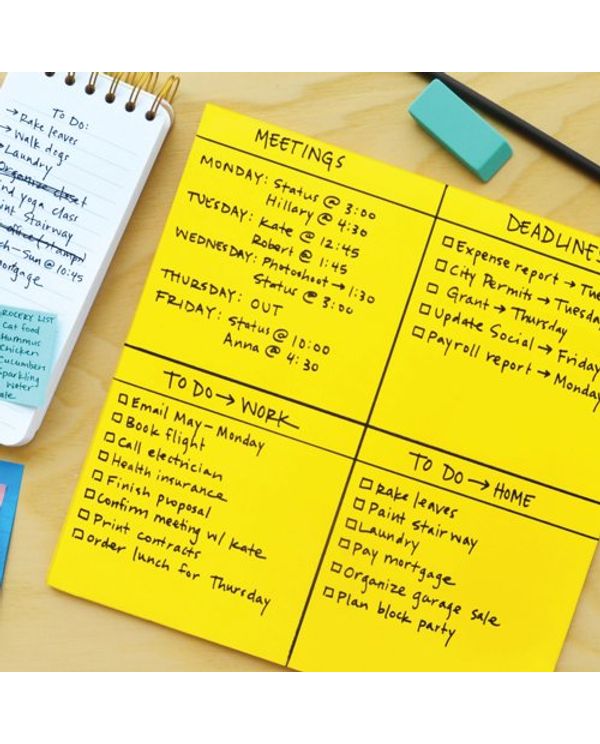 To Do:
→ Rake leaves
→ Walk dogs
→ Laundry
Organize closet
yoga class
Stairway
Sun @ 10:45
GROCERY LIST
Cat food
Hummus
Chicken
Cucumber
Sparkling
Water
MEETINGS
MONDAY: Status @ 3:00
Hillary @ 4:30
TUESDAY: Kate @ 12:45
Robert @ 1:45
WEDNESDAY: Photoshoot → 1:30
Status @ 3:00
THURSDAY: OUT
FRIDAY: Status @ 10:00
Anna @ 4:30
DEADLINES
□ Expense report → Tue
□ City Permits → Tuesda
□ Grant → Thursday
□ Update Social → Friday
□ Payroll report → Monday
TO DO → WORK
□ Email May – Monday
□ Book flight
□ Call electrician
□ Health insurance
□ Finish proposal
□ Confirm meeting w/ Kate
□ Print contracts
□ Order lunch for Thursday
TO DO → HOME
□ Rake leaves
□ Paint stairway
□ Laundry
□ Pay mortgage
□ Organize garage sale
□ Plan block party